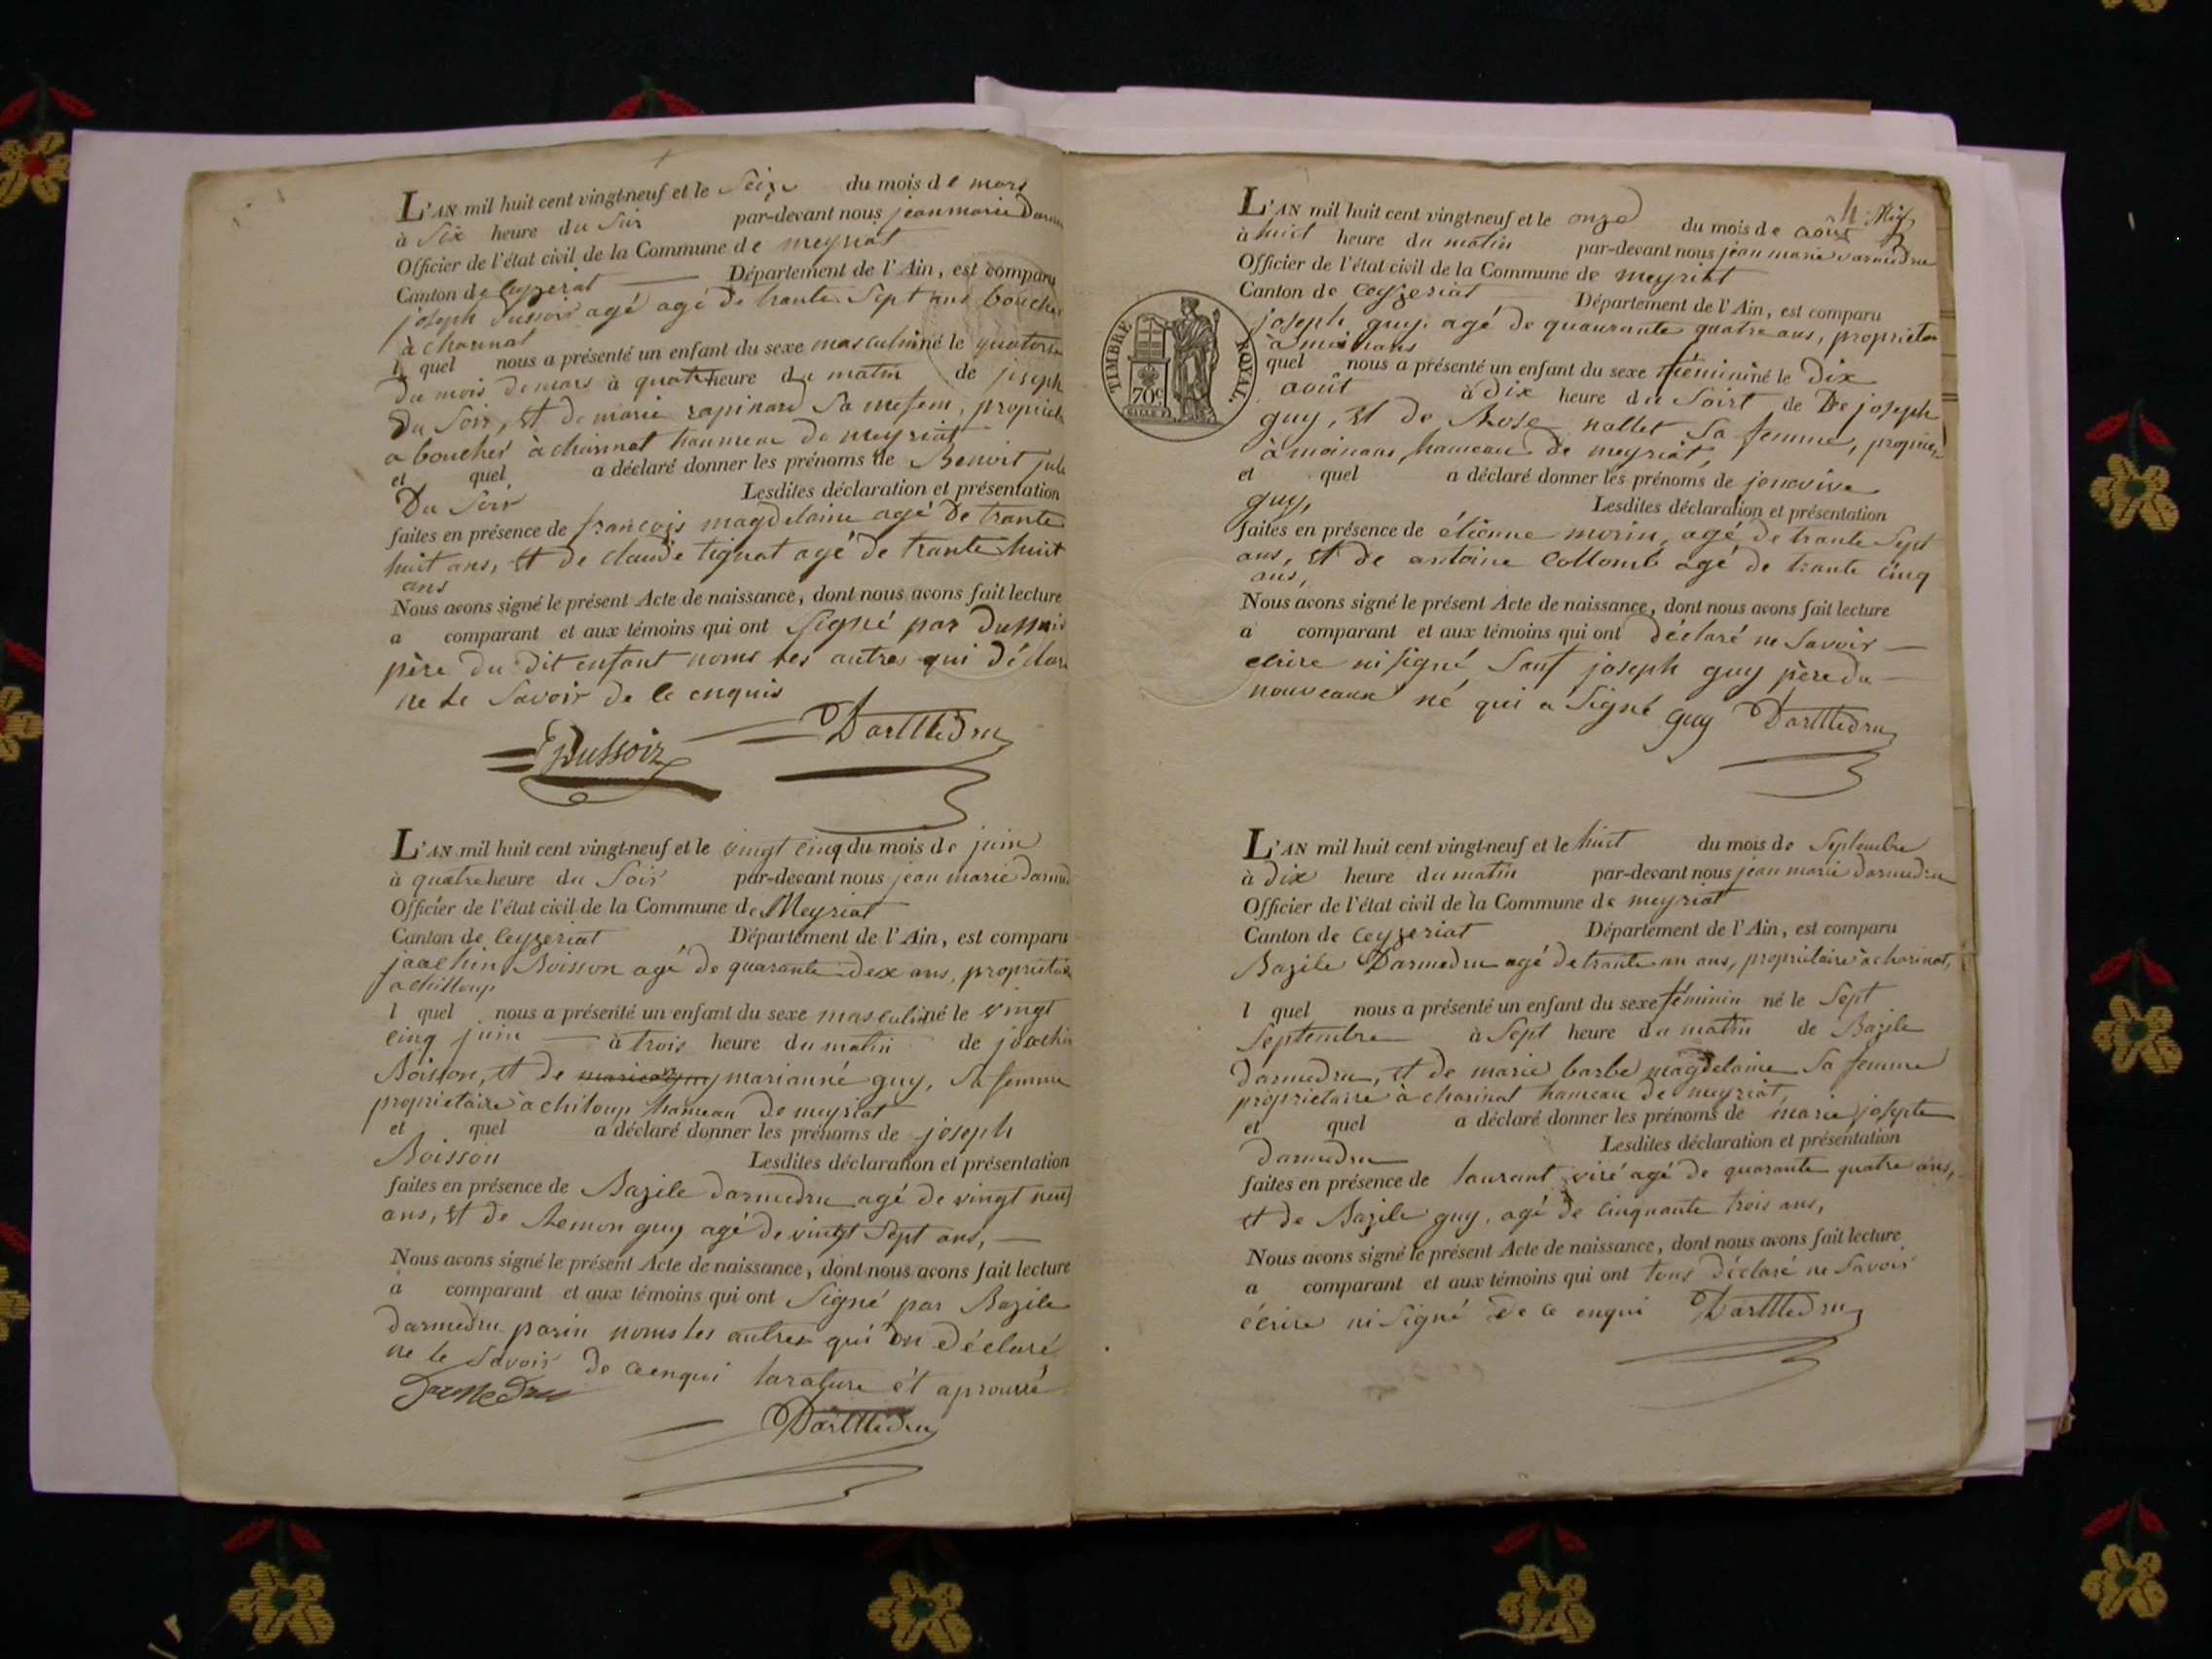 L'AN mil huit cent vingt-neuf et le Seize du mois de mars
à Six heure du Soir par-devant nous jean marie Darm
Officier de l'état civil de la Commune de meyriat
Canton de Ceyzeriat Département de l'Ain, est comparu
joseph Dussoir agé agé de trante Sept ans boucher
à charinat
l quel nous a présenté un enfant du sexe masculin né le quatorze
du mois de mars à quatre heure du matin de joseph
Du Soir, et de marie rapinard Sa mefem, propriet
a bouches à charinat hammeau de meyriat
et quel a déclaré donner les prénoms de Benoit jule
Du Soir Lesdites déclaration et présentation
faites en présence de françois magdelaine agé de trante
huit ans, et de claude tignat agé de trante huit
ans
Nous avons signé le présent Acte de naissance, dont nous avons fait lecture
a comparant et aux témoins qui ont Signé par Dussoir
père du dit enfant noms les autres qui déclar
ne le Savoir de le enquis
Dussoir DarMedru
L'AN mil huit cent vingt-neuf et le vingt cinq du mois de juin
à quatre heure du Soir par-devant nous jean marie Darmed
Officier de l'état civil de la Commune de Meyriat
Canton de Ceyzeriat Département de l'Ain, est comparu
jaachin Boisson agé de quarante dex ans, proprietaire
a chiloup
l quel nous a présenté un enfant du sexe masculin né le vingt
cinq juin à trois heure du matin de joachin
Boisson, et de marianné guy, Sa femme
proprietaire a chiloup hameau de meyriat
et quel a déclaré donner les prénoms de joseph
Boisson Lesdites déclaration et présentation
faites en présence de Bazile darmedru agé de vingt neuf
ans, et de Remon guy agé de vingt Sept ans,
Nous avons signé le présent Acte de naissance, dont nous avons fait lecture
a comparant et aux témoins qui ont Signé par Bazile
darmedru parin noms les autres qui on déclaré
ne le Savoir de ce enqui larature ét aprouvé
DarMedru
DarMedru
TIMBRE ROYAL.
70c
h
L'AN mil huit cent vingt-neuf et le onze du mois de août
à huit heure du matin par-devant nous jean marie darmedru
Officier de l'état civil de la Commune de meyriat
Canton de Ceyzeriat Département de l'Ain, est comparu
joseph guy agé de quaurante quatre ans, proprietaire
à moinans
quel nous a présenté un enfant du sexe féminin né le Dix
août à Dix heure du Soir de De joseph
guy, et de Rose nallet Sa femme, propriet
à moinans hameau de meyriat,
et quel a déclaré donner les prénoms de jenevive
guy, Lesdites déclaration et présentation
faites en présence de étienne morin, agé de trante Sept
ans, et de antoine Collomb agé de trante Cinq
ans,
Nous avons signé le présent Acte de naissance, dont nous avons fait lecture
a comparant et aux témoins qui ont déclaré ne Savoir
ecrire ni Signé, Sauf joseph guy père du
nouveaux né qui a Signé guy DarMedru
L'AN mil huit cent vingt-neuf et le huit du mois de Septembre
à Dix heure du matin par-devant nous jean marie darmedru
Officier de l'état civil de la Commune de meyriat
Canton de Ceyzeriat Département de l'Ain, est comparu
Bazile Darmedru agé de trante un ans, propriétaire à charinat,
l quel nous a présenté un enfant du sexe féminin né le Sept
Septembre à Sept heure du matin de Bazile
darmedru, et de marie barbe magdelaine Sa femme
proprietaire à charinat hameau de meyriat,
et quel a déclaré donner les prénoms de marie josepte
Darmedru Lesdites déclaration et présentation
faites en présence de laurant viré agé de quarante quatre ans,
et de Bazile guy, agé de Cinquante trois ans,
Nous avons signé le présent Acte de naissance, dont nous avons fait lecture
a comparant et aux témoins qui ont tous déclaré ne Savoir
écrire ni Signé de ce enqui DarMedru